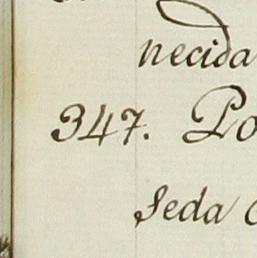 necida
347. Po
Seda